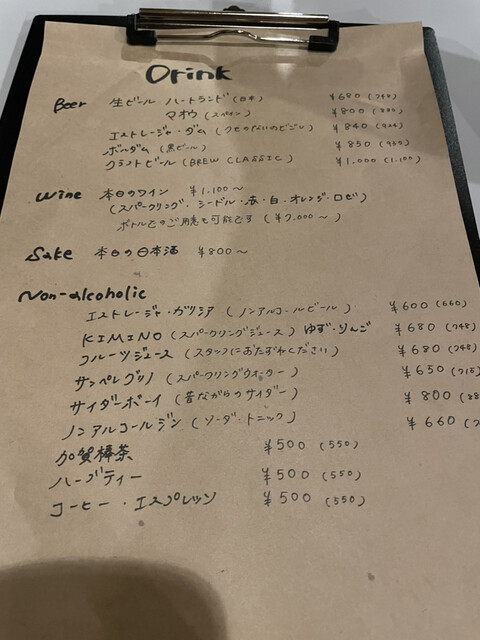 Drink
Beer 生ビール ハートランド (日本) ¥680 (748)
マオウ (スペイン) ¥800 (880)
エストレージャ・ダム (クセのないのどごし) ¥840 (924)
ボールダム (黒ビール) ¥850
クラフトビール (BREW CLASSIC) ¥1,000 (1,100)
Wine 本日のワイン ¥1,100〜
(スパークリング・シードル・赤・白・オレンジ・ロゼ)
ボトルでのご用意も可能です (¥7,000〜)
Sake 本日の日本酒 ¥800〜
Non-alcoholic
エストレージャ・ガリシア (ノンアルコールビール) ¥600 (660)
KIMINO (スパークリングジュース) ゆず・りんご ¥680 (748)
フルーツジュース (スタッフにおたずねください) ¥680 (748)
サンペレグリノ (スパークリングウォーター) ¥650 (715)
サイダーボーイ (昔ながらのサイダー) ¥800
ノンアルコールジン (ソーダ・トニック) ¥660
加賀棒茶 ¥500 (550)
ハーブティー ¥500 (550)
コーヒー・エスプレッソ ¥500 (550)